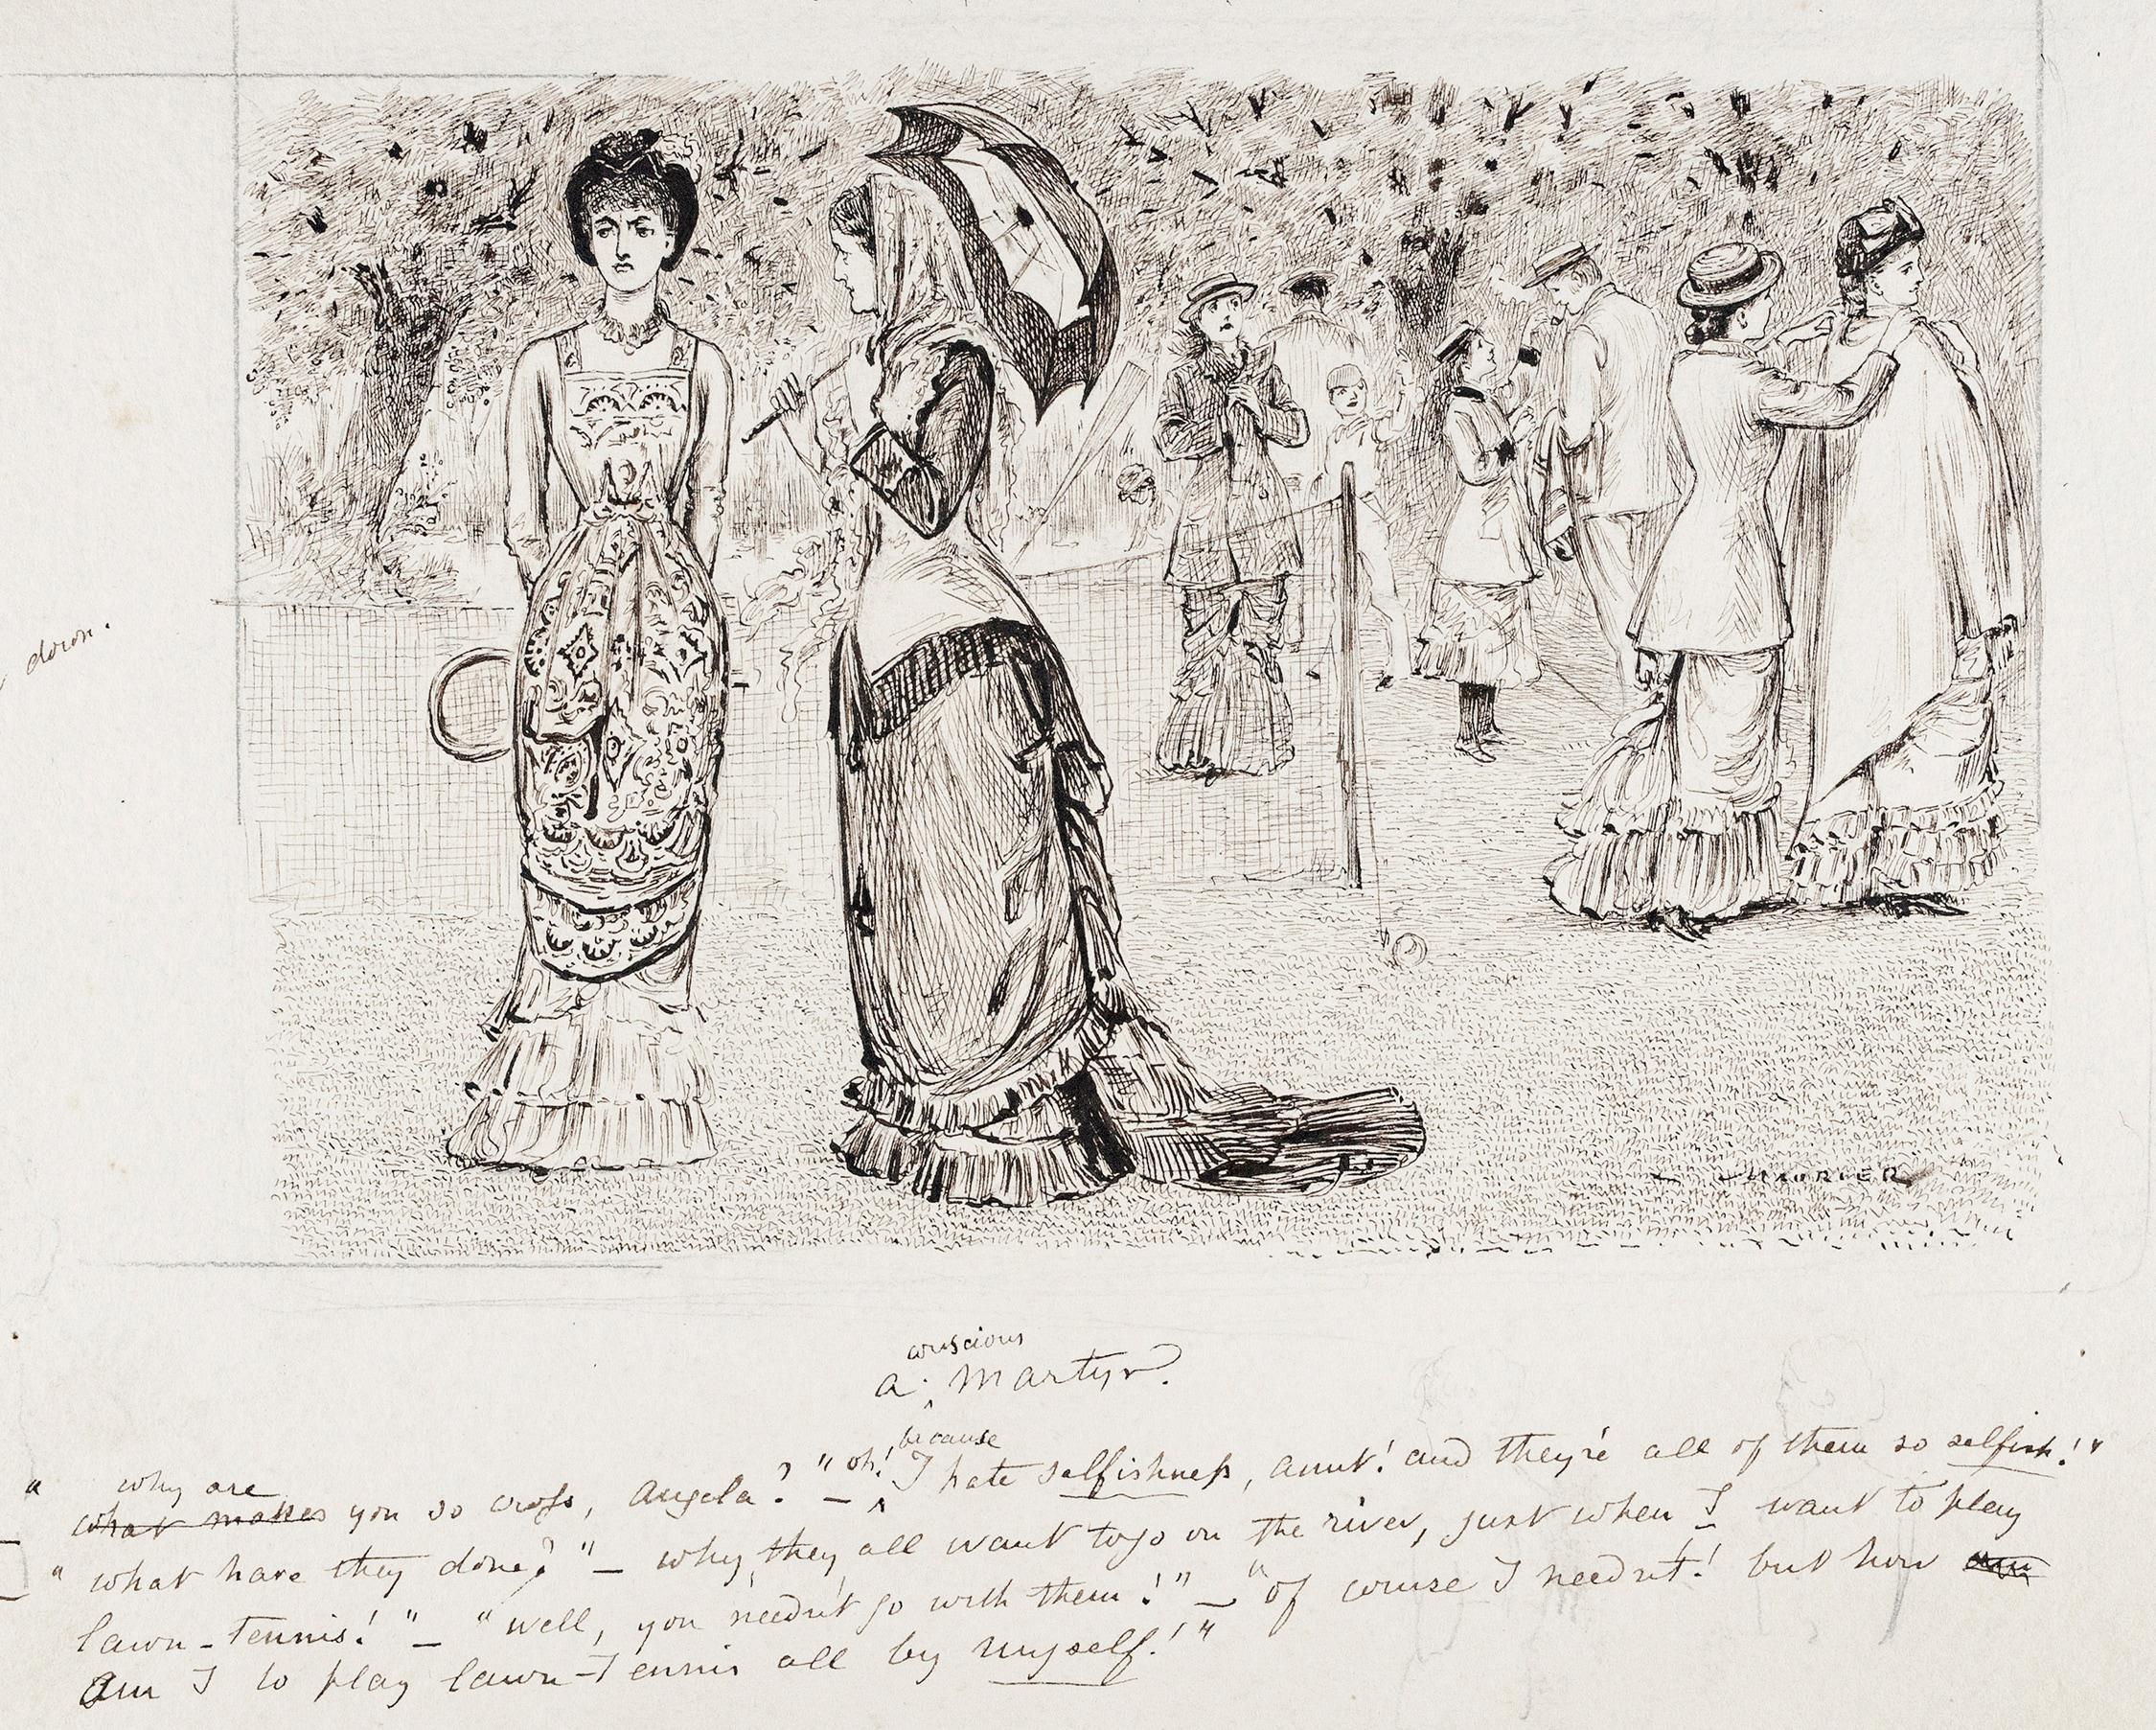 down.
MAURIER
conscious
a martyr.
because
why are
"what makes you so cross, Angela?" — "oh! I hate selfishness, aunt! and they're all of them so selfish!"
"what have they done?" — why, they all want to go on the river, just when I want to play
lawn-tennis!" — "well, you needn't go with them!" — "of course I needn't! but how
am I to play lawn-Tennis all by myself!"